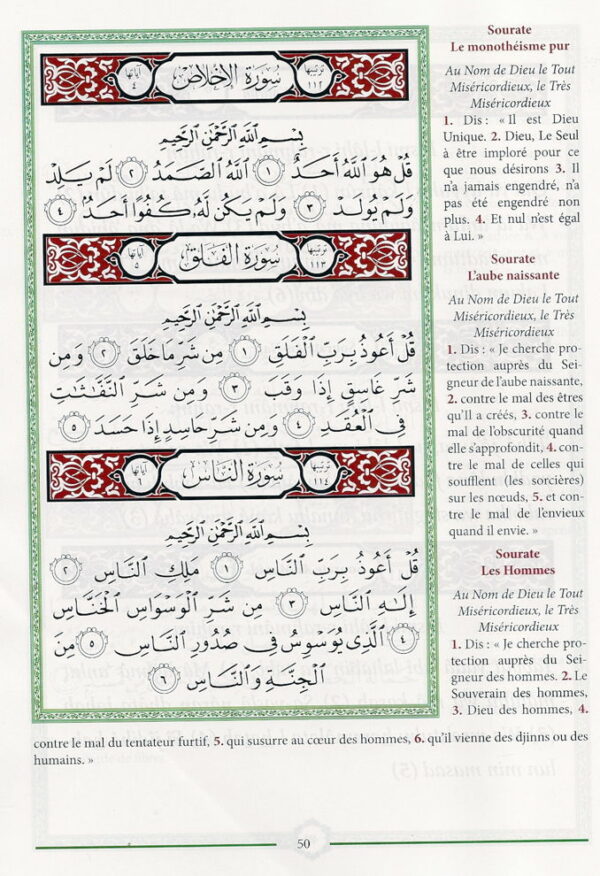 آياتها ٤ سُورَةُ الإِخْلَاصِ ترتيبها ١١٢
بِسْمِ اللَّهِ الرَّحْمَٰنِ الرَّحِيمِ
قُلْ هُوَ اللَّهُ أَحَدٌ ١ اللَّهُ الصَّمَدُ ٢ لَمْ يَلِدْ
وَلَمْ يُولَدْ ٣ وَلَمْ يَكُن لَّهُ كُفُوًا أَحَدٌ ٤
آياتها ٥ سُورَةُ الفَلَقِ ترتيبها ١١٣
بِسْمِ اللَّهِ الرَّحْمَٰنِ الرَّحِيمِ
قُلْ أَعُوذُ بِرَبِّ الْفَلَقِ ١ مِن شَرِّ مَا خَلَقَ ٢ وَمِن
شَرِّ غَاسِقٍ إِذَا وَقَبَ ٣ وَمِن شَرِّ النَّفَّاثَاتِ
فِي الْعُقَدِ ٤ وَمِن شَرِّ حَاسِدٍ إِذَا حَسَدَ ٥
آياتها ٦ سُورَةُ النَّاسِ ترتيبها ١١٤
بِسْمِ اللَّهِ الرَّحْمَٰنِ الرَّحِيمِ
قُلْ أَعُوذُ بِرَبِّ النَّاسِ ١ مَلِكِ النَّاسِ ٢
إِلَٰهِ النَّاسِ ٣ مِن شَرِّ الْوَسْوَاسِ الْخَنَّاسِ
٤ الَّذِي يُوَسْوِسُ فِي صُدُورِ النَّاسِ ٥ مِنَ
الْجِنَّةِ وَالنَّاسِ ٦
Sourate
Le monothéisme pur
Au Nom de Dieu le Tout
Miséricordieux, le Très
Miséricordieux
1. Dis : « Il est Dieu
Unique. 2. Dieu, Le Seul
à être imploré pour ce
que nous désirons 3. Il
n'a jamais engendré, n'a
pas été engendré non
plus. 4. Et nul n'est égal
à Lui. »
Sourate
L'aube naissante
Au Nom de Dieu le Tout
Miséricordieux, le Très
Miséricordieux
1. Dis : « Je cherche pro-
tection auprès du Sei-
gneur de l'aube naissante,
2. contre le mal des êtres
qu'Il a créés, 3. contre le
mal de l'obscurité quand
elle s'approfondit, 4. con-
tre le mal de celles qui
soufflent (les sorcières)
sur les nœuds, 5. et con-
tre le mal de l'envieux
quand il envie. »
Sourate
Les Hommes
Au Nom de Dieu le Tout
Miséricordieux, le Très
Miséricordieux
1. Dis : « Je cherche pro-
tection auprès du Sei-
gneur des hommes. 2. Le
Souverain des hommes,
3. Dieu des hommes, 4.
contre le mal du tentateur furtif, 5. qui susurre au cœur des hommes, 6. qu'il vienne des djinns ou des
humains. »
50